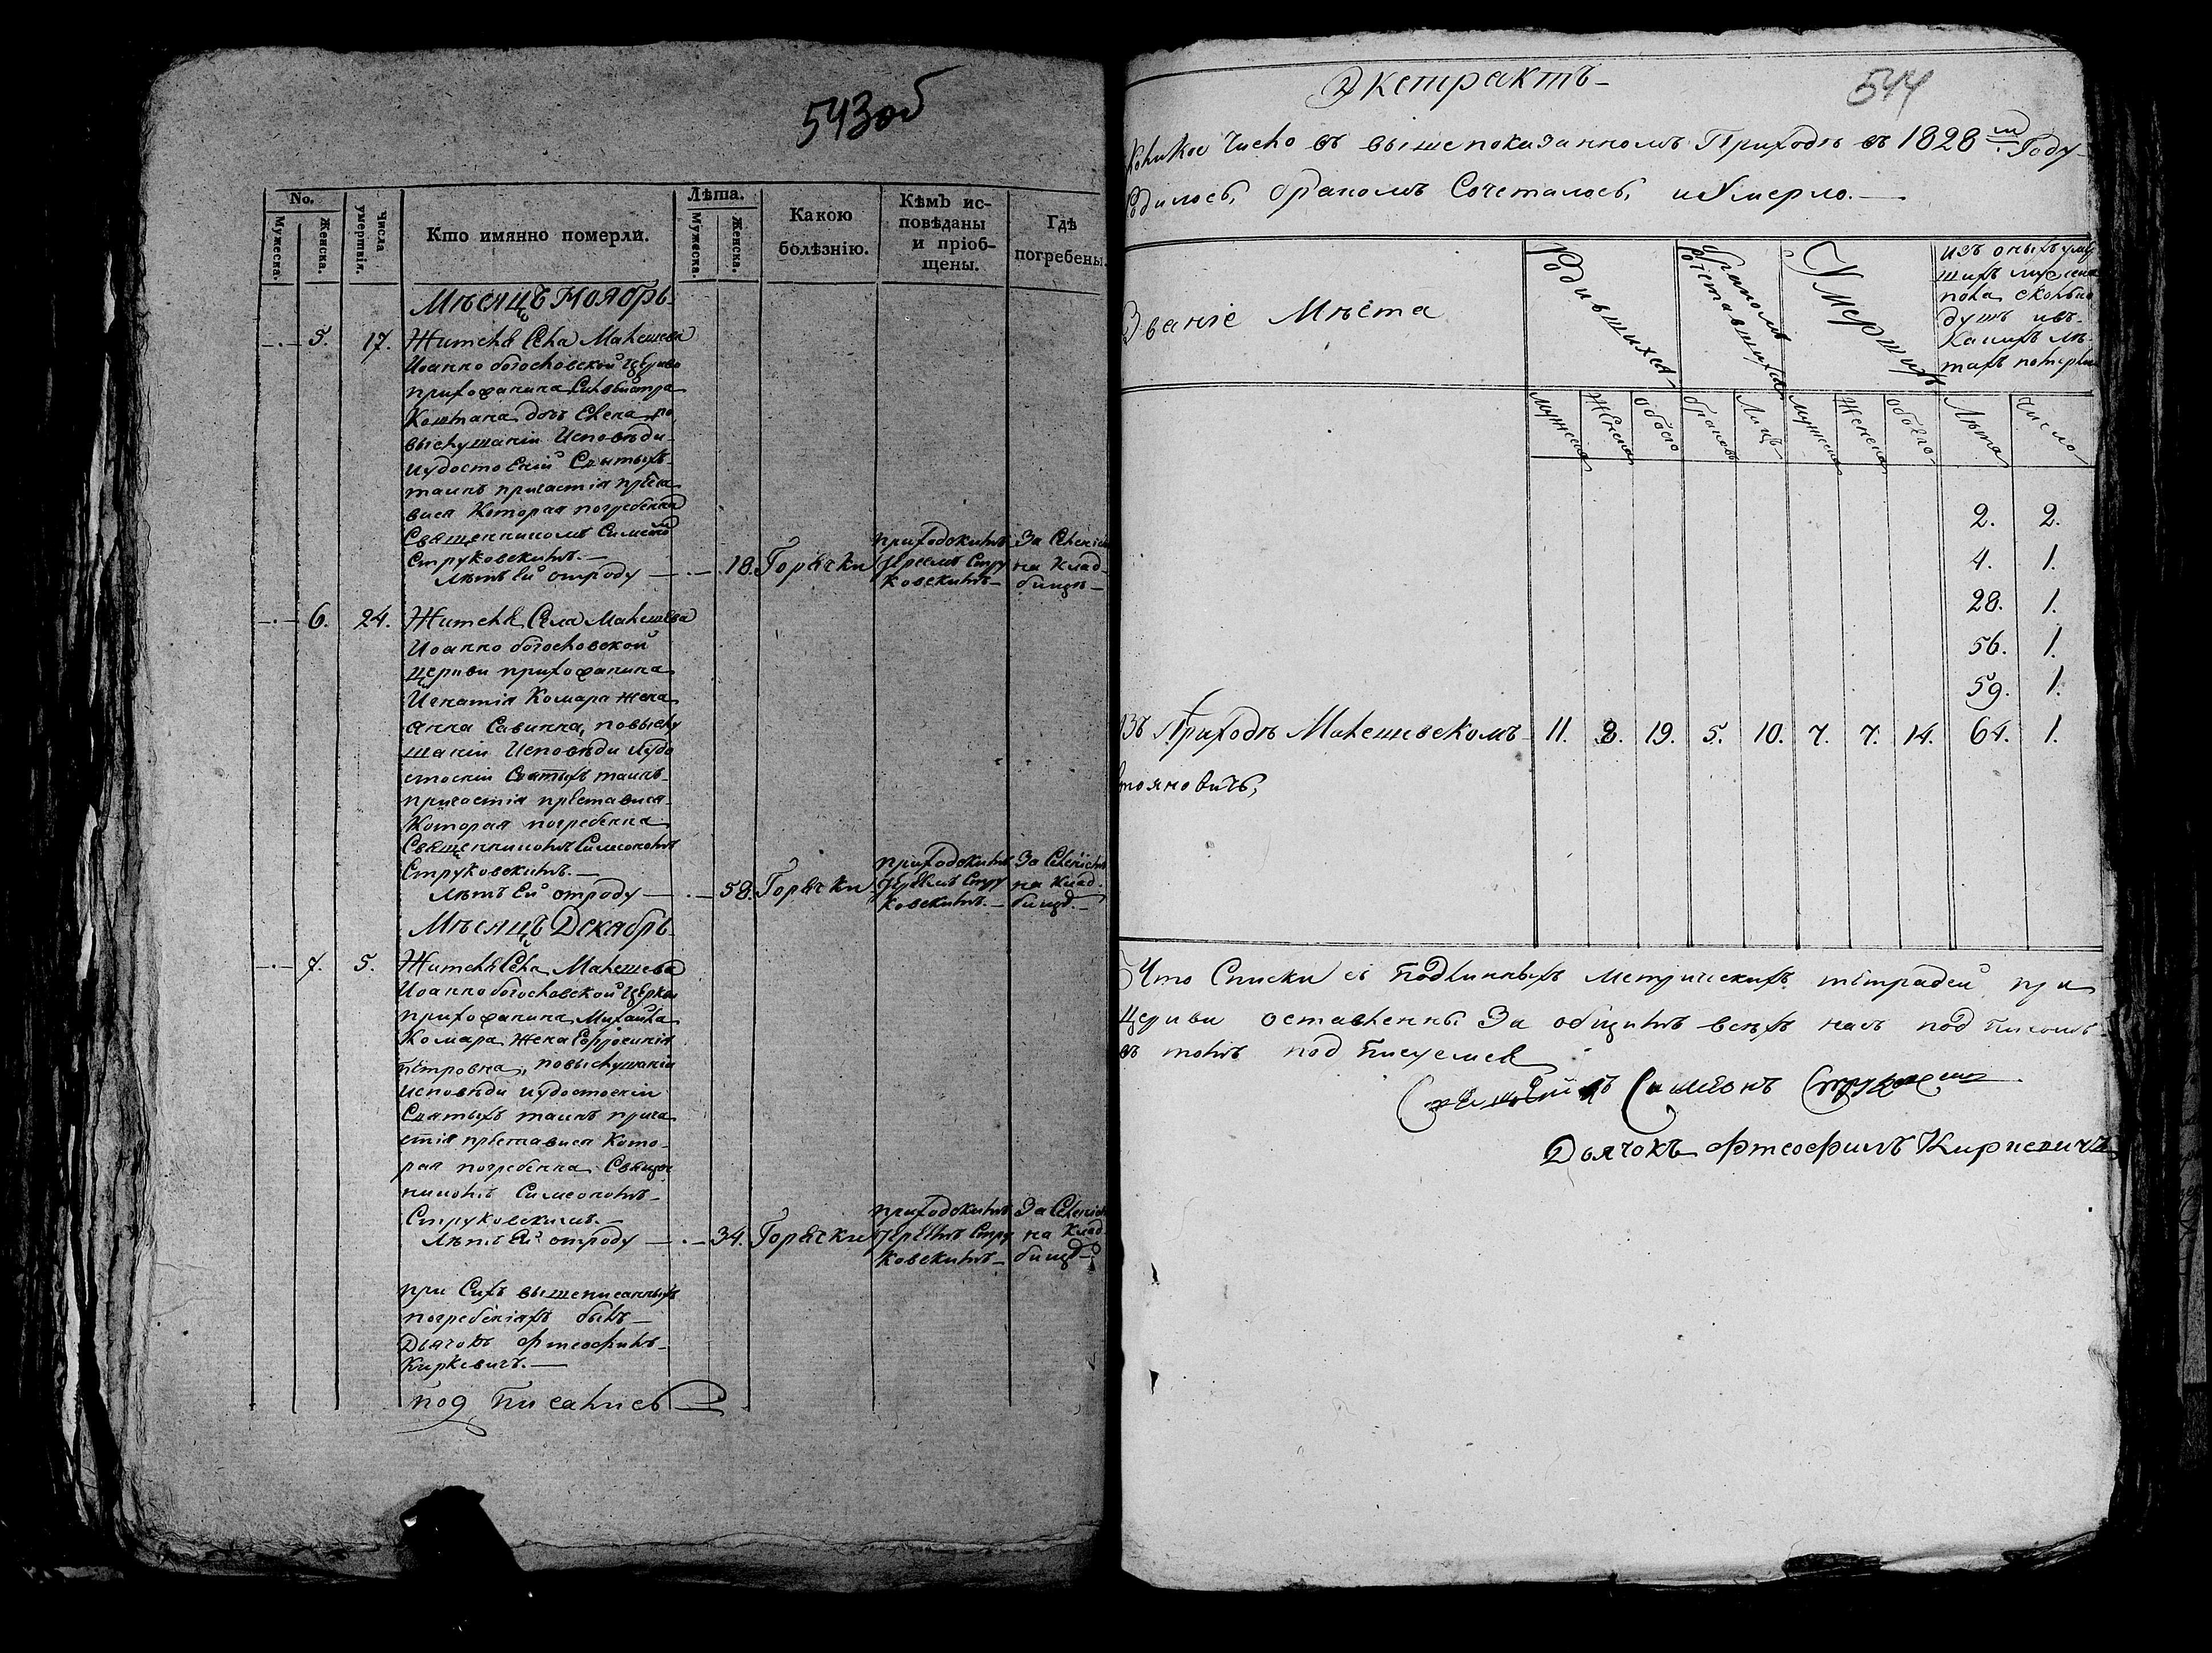 543 об
No.
Мужеска.
Женска.
Числа умертвія.
Кто имянно померли.
Лѣта.
Мужеска.
Женска.
Какою
болѣзнію.
Кѣмъ ис-
повѣданы
и пріоб-
щены.
Гдѣ
погребены.
Мѣсяцъ Ноябрь
5. 17. Жителя Села Малешева
Иоанно богословской Церкви
прихожанина
дочь Елена по
выслушаніи Исповѣди
и удостоеніи Святыхъ
таинъ причастія преста
вися Которая погребенна
Священникомъ Симеоно
Струковскимъ.—
Лѣтъ Ей отроду — 18. Горячки приходскимъ Іереемъ Стру ковскимъ— За Селеніем на клад бищѣ—
6. 24. Жителя Села Малешева
Иоанно богословской
Церкви прихожанина
Игнатія Комара жена
Анна Савинна, повыслу
шаніи Исповѣди иудо
стоеніи Святыхъ таинъ
причастія преставися
Которая погребенна
Священникомъ Симеономъ
Струковскимъ.—
Лѣтъ Ей отроду — 58. Горячки приходскимъ Іереемъ Стру ковскимъ.— За Селеніемъ на клад бищѣ.—
Мѣсяцъ Декабрь
7. 5. Жителя Села Малешева
Иоанно богословской Церкви
прихожанина Михаила
Комара жена Евфросинія
Петровна, повыслушаніи
исповѣди иудостоеніи
Святыхъ таинъ прича
стія преставися Кото-
рая погребенна Священ
никомъ Симеономъ
Струковскимъ.—
Лѣтъ Ей отроду — 34. Горячки приходскимъ Іереемъ Стру ковскимъ— За Селеніем на клад бищѣ—
при Сихъ вышеписанныхъ
погребеніяхъ былъ—
Дьячокъ Фтеофилъ
Киркевичъ.—
подписались
544
Экстрактъ—
Коликое Число въ вышепоказанномъ Приходѣ въ 1828м Году
Родилось, бракомъ Сочеталось, и Умерло.—
Званіе Мѣста
Родившихся
бракомъ
Сочетавшихся
Умершихъ
изъ оныхъ умер
шихъ мужеска
пола сколько
душъ и въ
Какихъ лѣ-
тахъ померли
мужеска
женска
обоего
браковъ
Лицъ
мужеска
женска
обоего
Лѣта
Число
2. 2.
4. 1.
28. 1.
56. 1.
59. 1.
Въ Приходѣ Малешевскомъ 11. 8. 19. 5. 10. 7. 7. 14. 64. 1.
Что Списки съ Подлинныхъ Метрическихъ тетрадей при
Церкви оставленны За общимъ всѣхъ насъ под писомъ
въ томъ под Писуемся
Симеонъ
Дьячокъ Фтеофилъ Киркевичъ